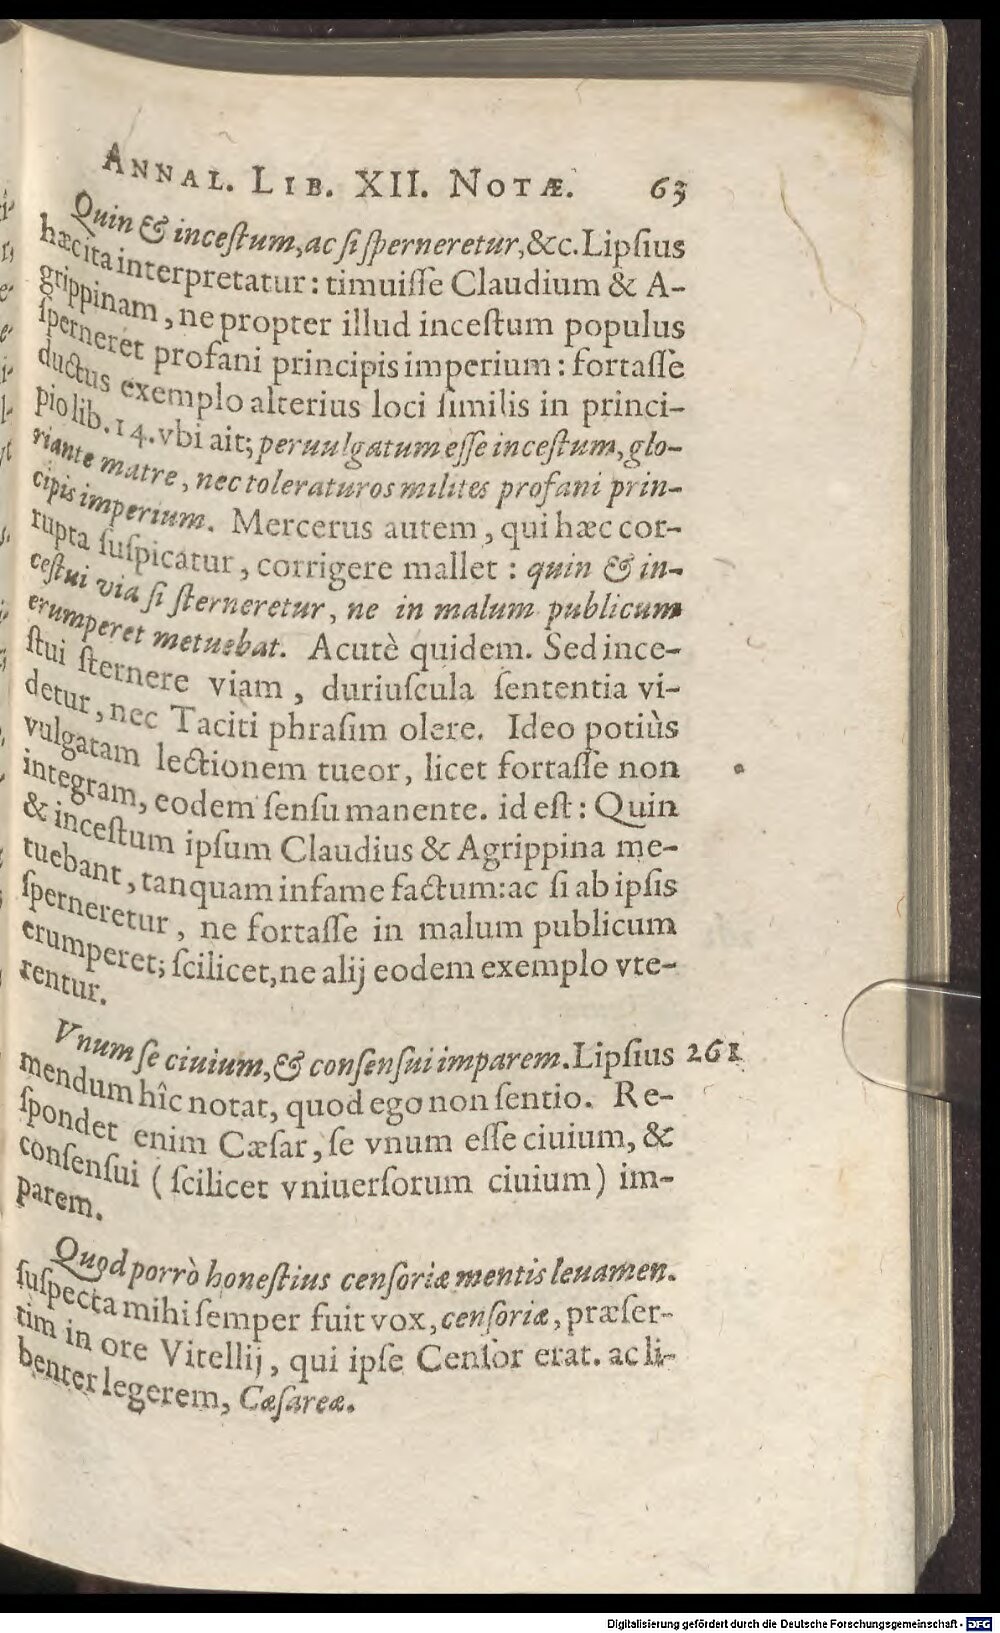 ANNAL. LIB. XII. NOTÆ. 63
Quin & inceſtum, ac ſi ſperneretur, &c. Lipſius
hæc ita interpretatur: timuiſſe Claudium & A-
grippinam, ne propter illud inceſtum populus
ſperneret profani principis imperium: fortaſſe
ductus exemplo alterius loci ſimilis in princi-
pio lib. 14. vbi ait; peruulgatum eſſe inceſtum, glo-
riante matre, nec toleraturos milites profani prin-
cipis imperium. Mercerus autem, qui hæc cor-
rupta ſuſpicatur, corrigere mallet: quin & in-
ceſtui via ſi ſterneretur, ne in malum publicum
erumperet metuebat. Acutè quidem. Sed ince-
ſtui ſternere viam, duriuſcula ſententia vi-
detur, nec Taciti phraſim olere. Ideo potiùs
vulgatam lectionem tueor, licet fortaſſe non
integram, eodem ſenſu manente. id eſt: Quin
& inceſtum ipſum Claudius & Agrippina me-
tuebant, tanquam infame factum: ac ſi ab ipſis
ſperneretur, ne fortaſſe in malum publicum
erumperet; ſcilicet, ne alij eodem exemplo vte-
rentur.
Vnum ſe ciuium, & conſenſui imparem. Lipſius 261
mendum hîc notat, quod ego non ſentio. Re-
ſpondet enim Cæſar, ſe vnum eſſe ciuium, &
conſenſui (ſcilicet vniuerſorum ciuium) im-
parem.
Quod porrò honeſtius cenſoriæ mentis leuamen.
ſuſpecta mihi ſemper fuit vox, cenſoriæ, præſer-
tim in ore Vitellij, qui ipſe Cenſor erat. ac li-
benter legerem, Cæſareæ.
Digitalisierung gefördert durch die Deutsche Forschungsgemeinschaft - DFG